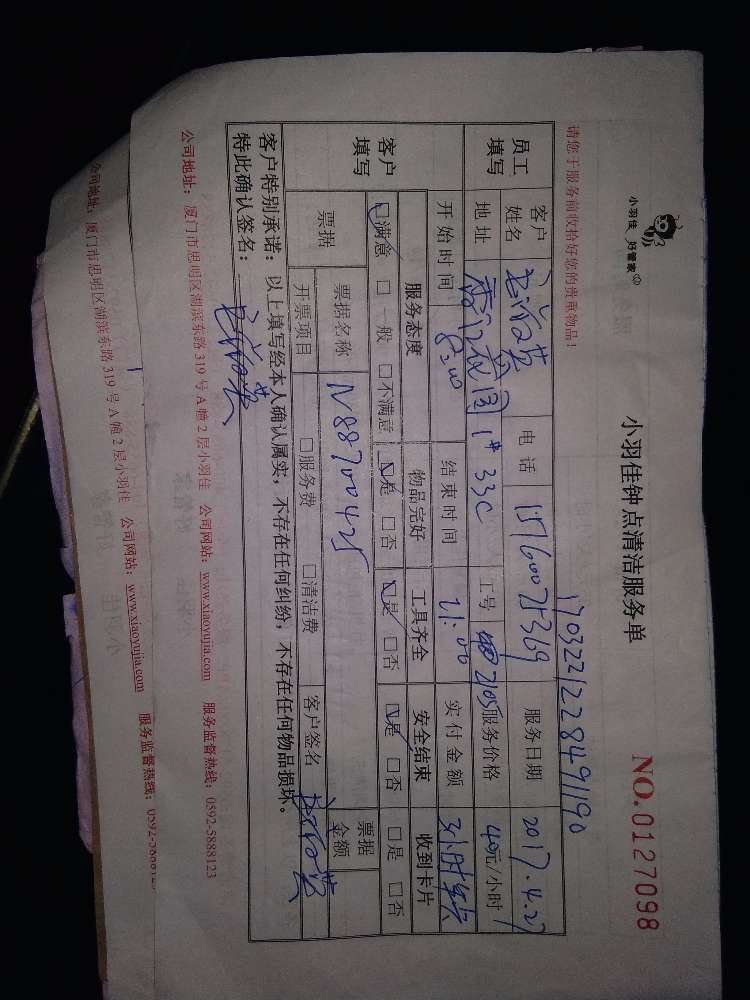 小羽佳 好管家
小羽佳钟点清洁服务单
NO.0127098
170322122849190
请您于服务前收拾好您的贵重物品!
员工填写 客户姓名 电话 15160075369 服务日期 2017.4.27
地址 1#33C 工号 2105 服务价格 40元/小时
开始时间 8:00 结束时间 11:00 实付金额 3小时
客户填写 服务态度 物品完好 工具齐全 安全结束 收到卡片
☑满意 □一般 □不满意 ☑是 □否 ☑是 □否 ☑是 □否 □是 □否
票据 票据名称 N88700425 票据金额
开票项目 □服务费 □清洁费 客户签名
客户特别承诺:以上填写经本人确认属实,不存在任何纠纷,不存在任何物品损坏。
特此确认签名:
公司地址:厦门市思明区湖滨东路319号A幢2层小羽佳 公司网站:www.xiaoyujia.com 服务监督热线:0592-5888123
公司地址:厦门市思明区湖滨东路319号A幢2层小羽佳 公司网站:www.xiaoyujia.com 服务监督热线:0592-5888123